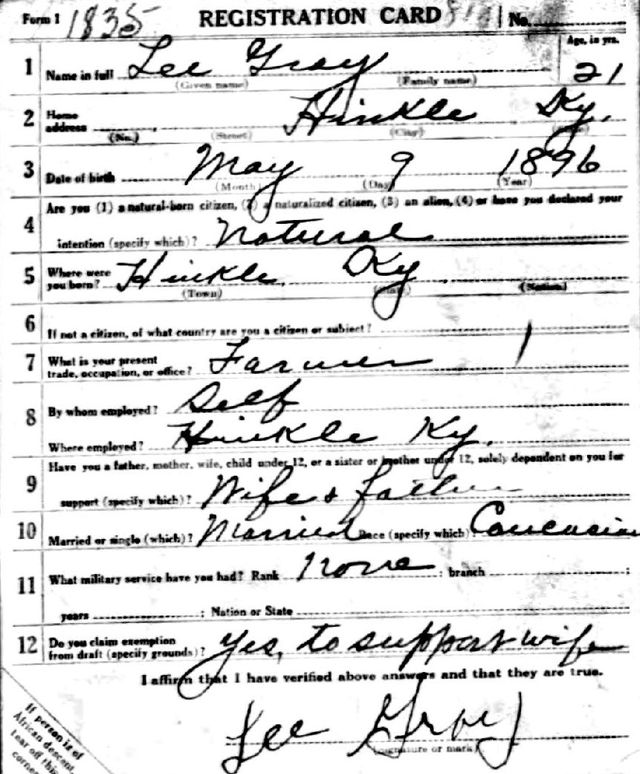 Form 1 1835 REGISTRATION CARD No.
Age, in yrs.
1 Name in full Lee Gray 21
(Given name) (Family name)
2 Home address Hinkle Ky.
(No.) (Street) (City)
3 Date of birth May 9 1896
(Month) (Day) (Year)
4 Are you (1) a natural-born citizen, (2) a naturalized citizen, (3) an alien, (4) or have you declared your
intention (specify which)? Natural
5 Where were you born? Hinkle Ky
(Town) (State) (Nation)
6 If not a citizen, of what country are you a citizen or subject?
7 What is your present trade, occupation, or office? Farmer 1
8 By whom employed? Self
Where employed? Hinkle Ky.
9 Have you a father, mother, wife, child under 12, or a sister or brother under 12, solely dependent on you for
support (specify which)? Wife & father
10 Married or single (which)? Married Race (specify which) Caucasian
11 What military service have you had? Rank none ; branch ;
years ; Nation or State
12 Do you claim exemption from draft (specify grounds)? Yes, to support wife
I affirm that I have verified above answers and that they are true.
Lee Gray
(Signature or mark)
If person is of
African descent,
tear off this
corner